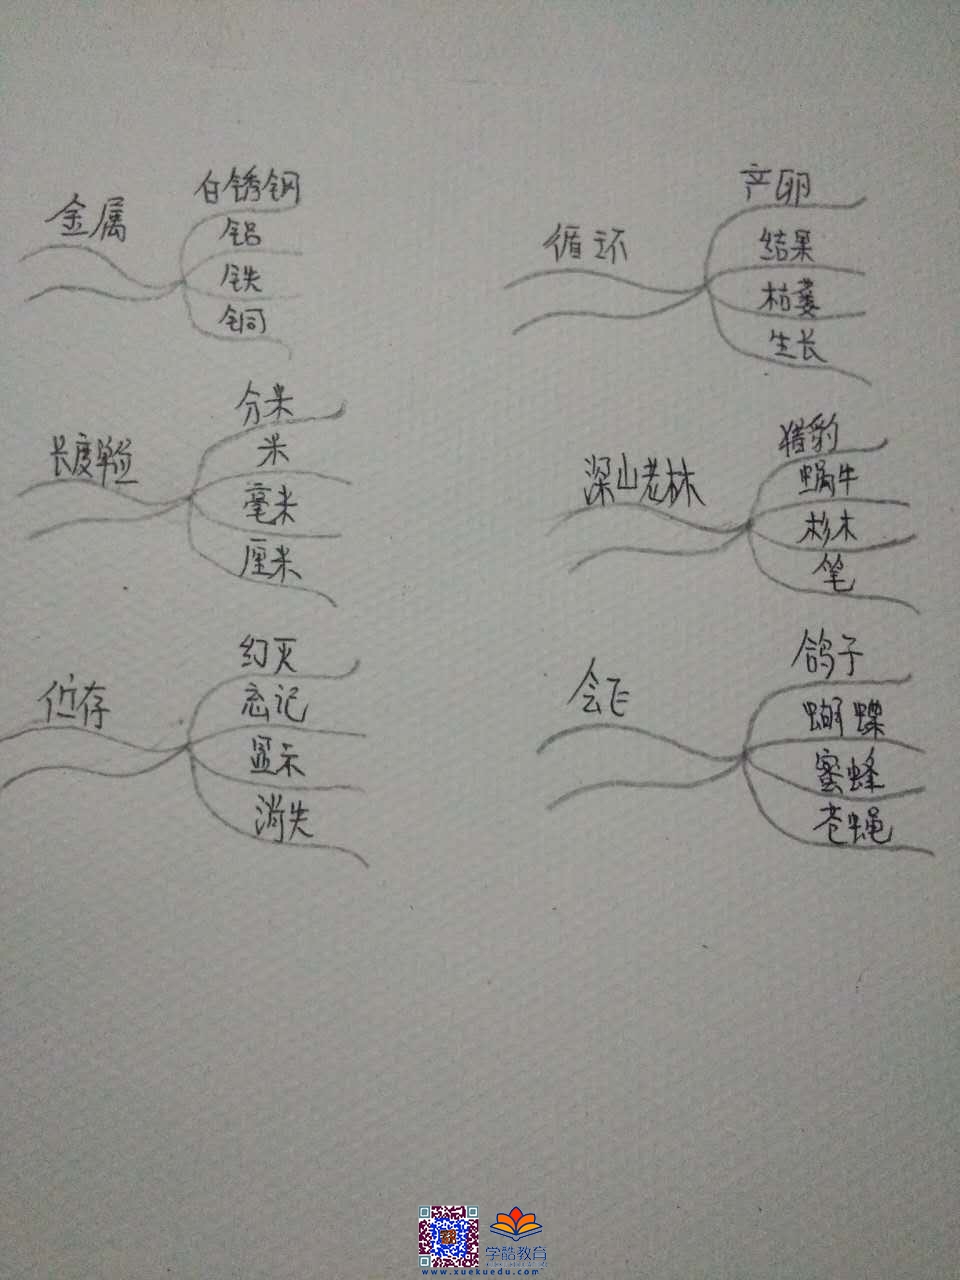 金属
白锈钢
铝
铁
铜
循环
产卵
结果
枯萎
生长
长度单位
分米
米
毫米
厘米
深山老林
猎豹
蜗牛
杉木
笔
保存
幻灭
忘记
显示
消失
会飞
鸽子
蝴蝶
蜜蜂
苍蝇
学酷教育
www.xuekuedu.com